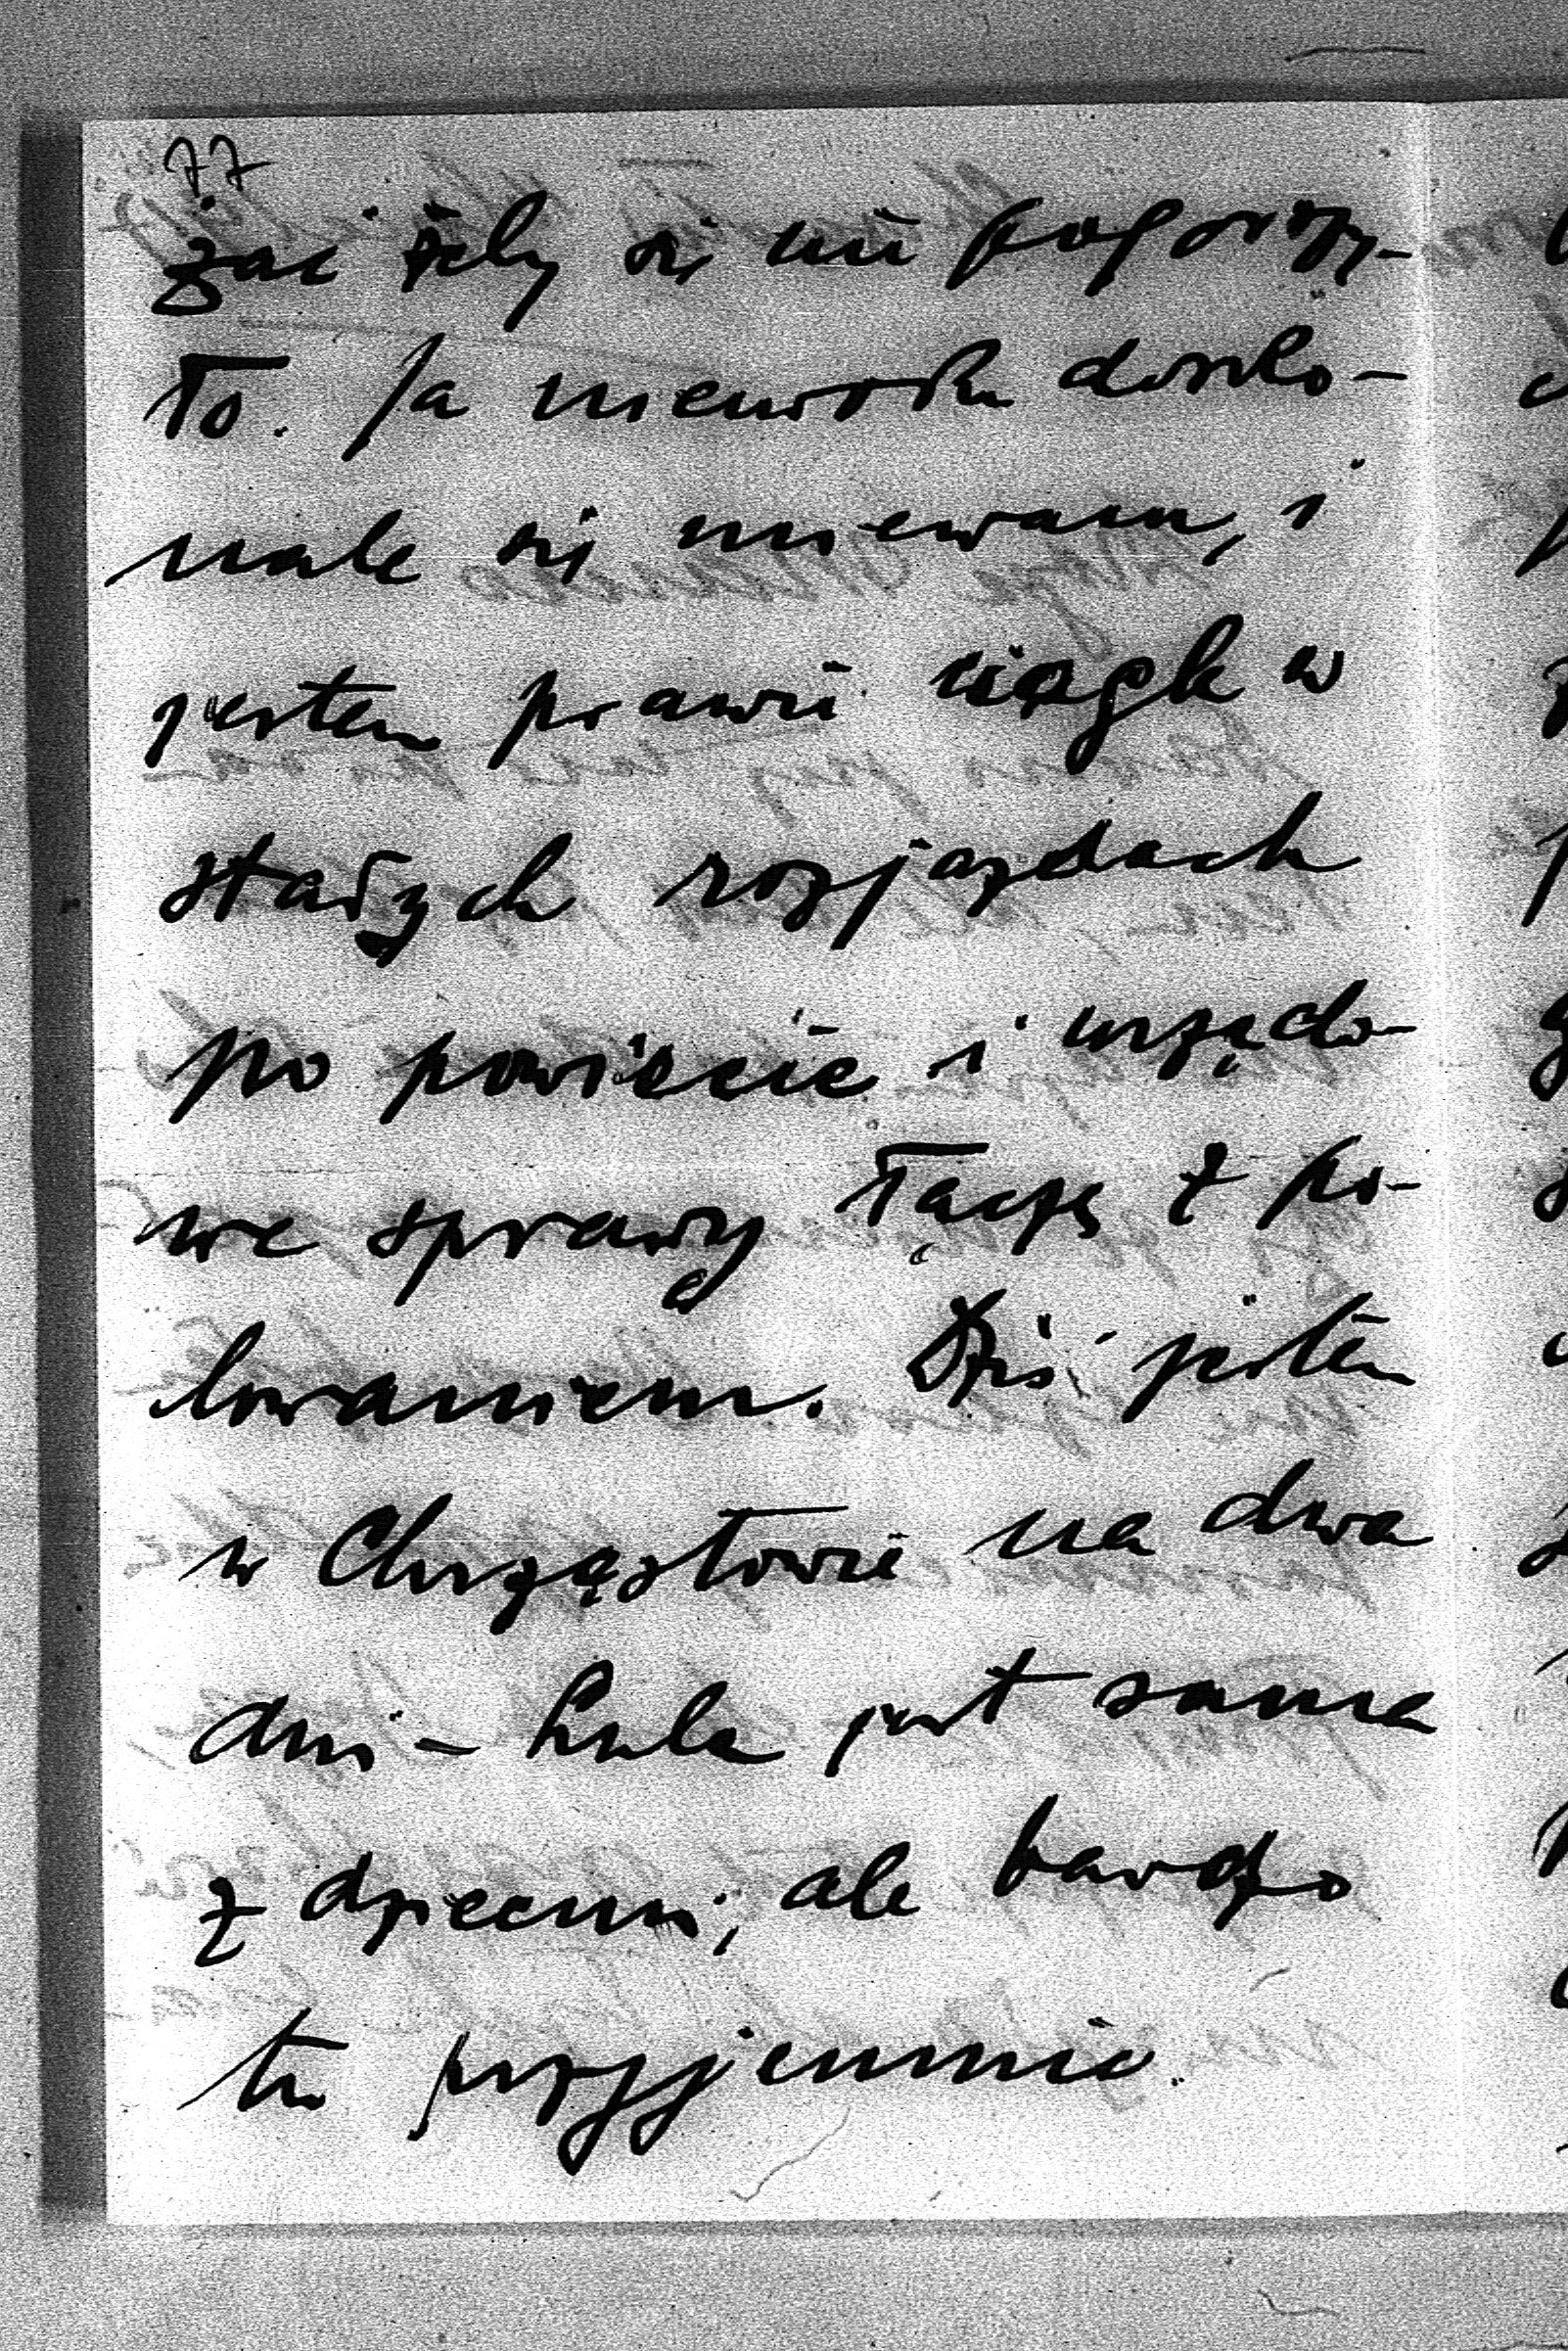 77
żać żeby się nie pogorszy-
ło. Ja niewoła dosko-
nale się miewam, i
jestem prawie ciągle w
stałych rozjazdach
po powiecie i urzędo-
we sprawy łączę z po-
lowaniem. Dziś jestem
w Chrząstowie na dwa
dni – Lula jest sama
z dziećmi, ale bardzo
tu przyjemnie.